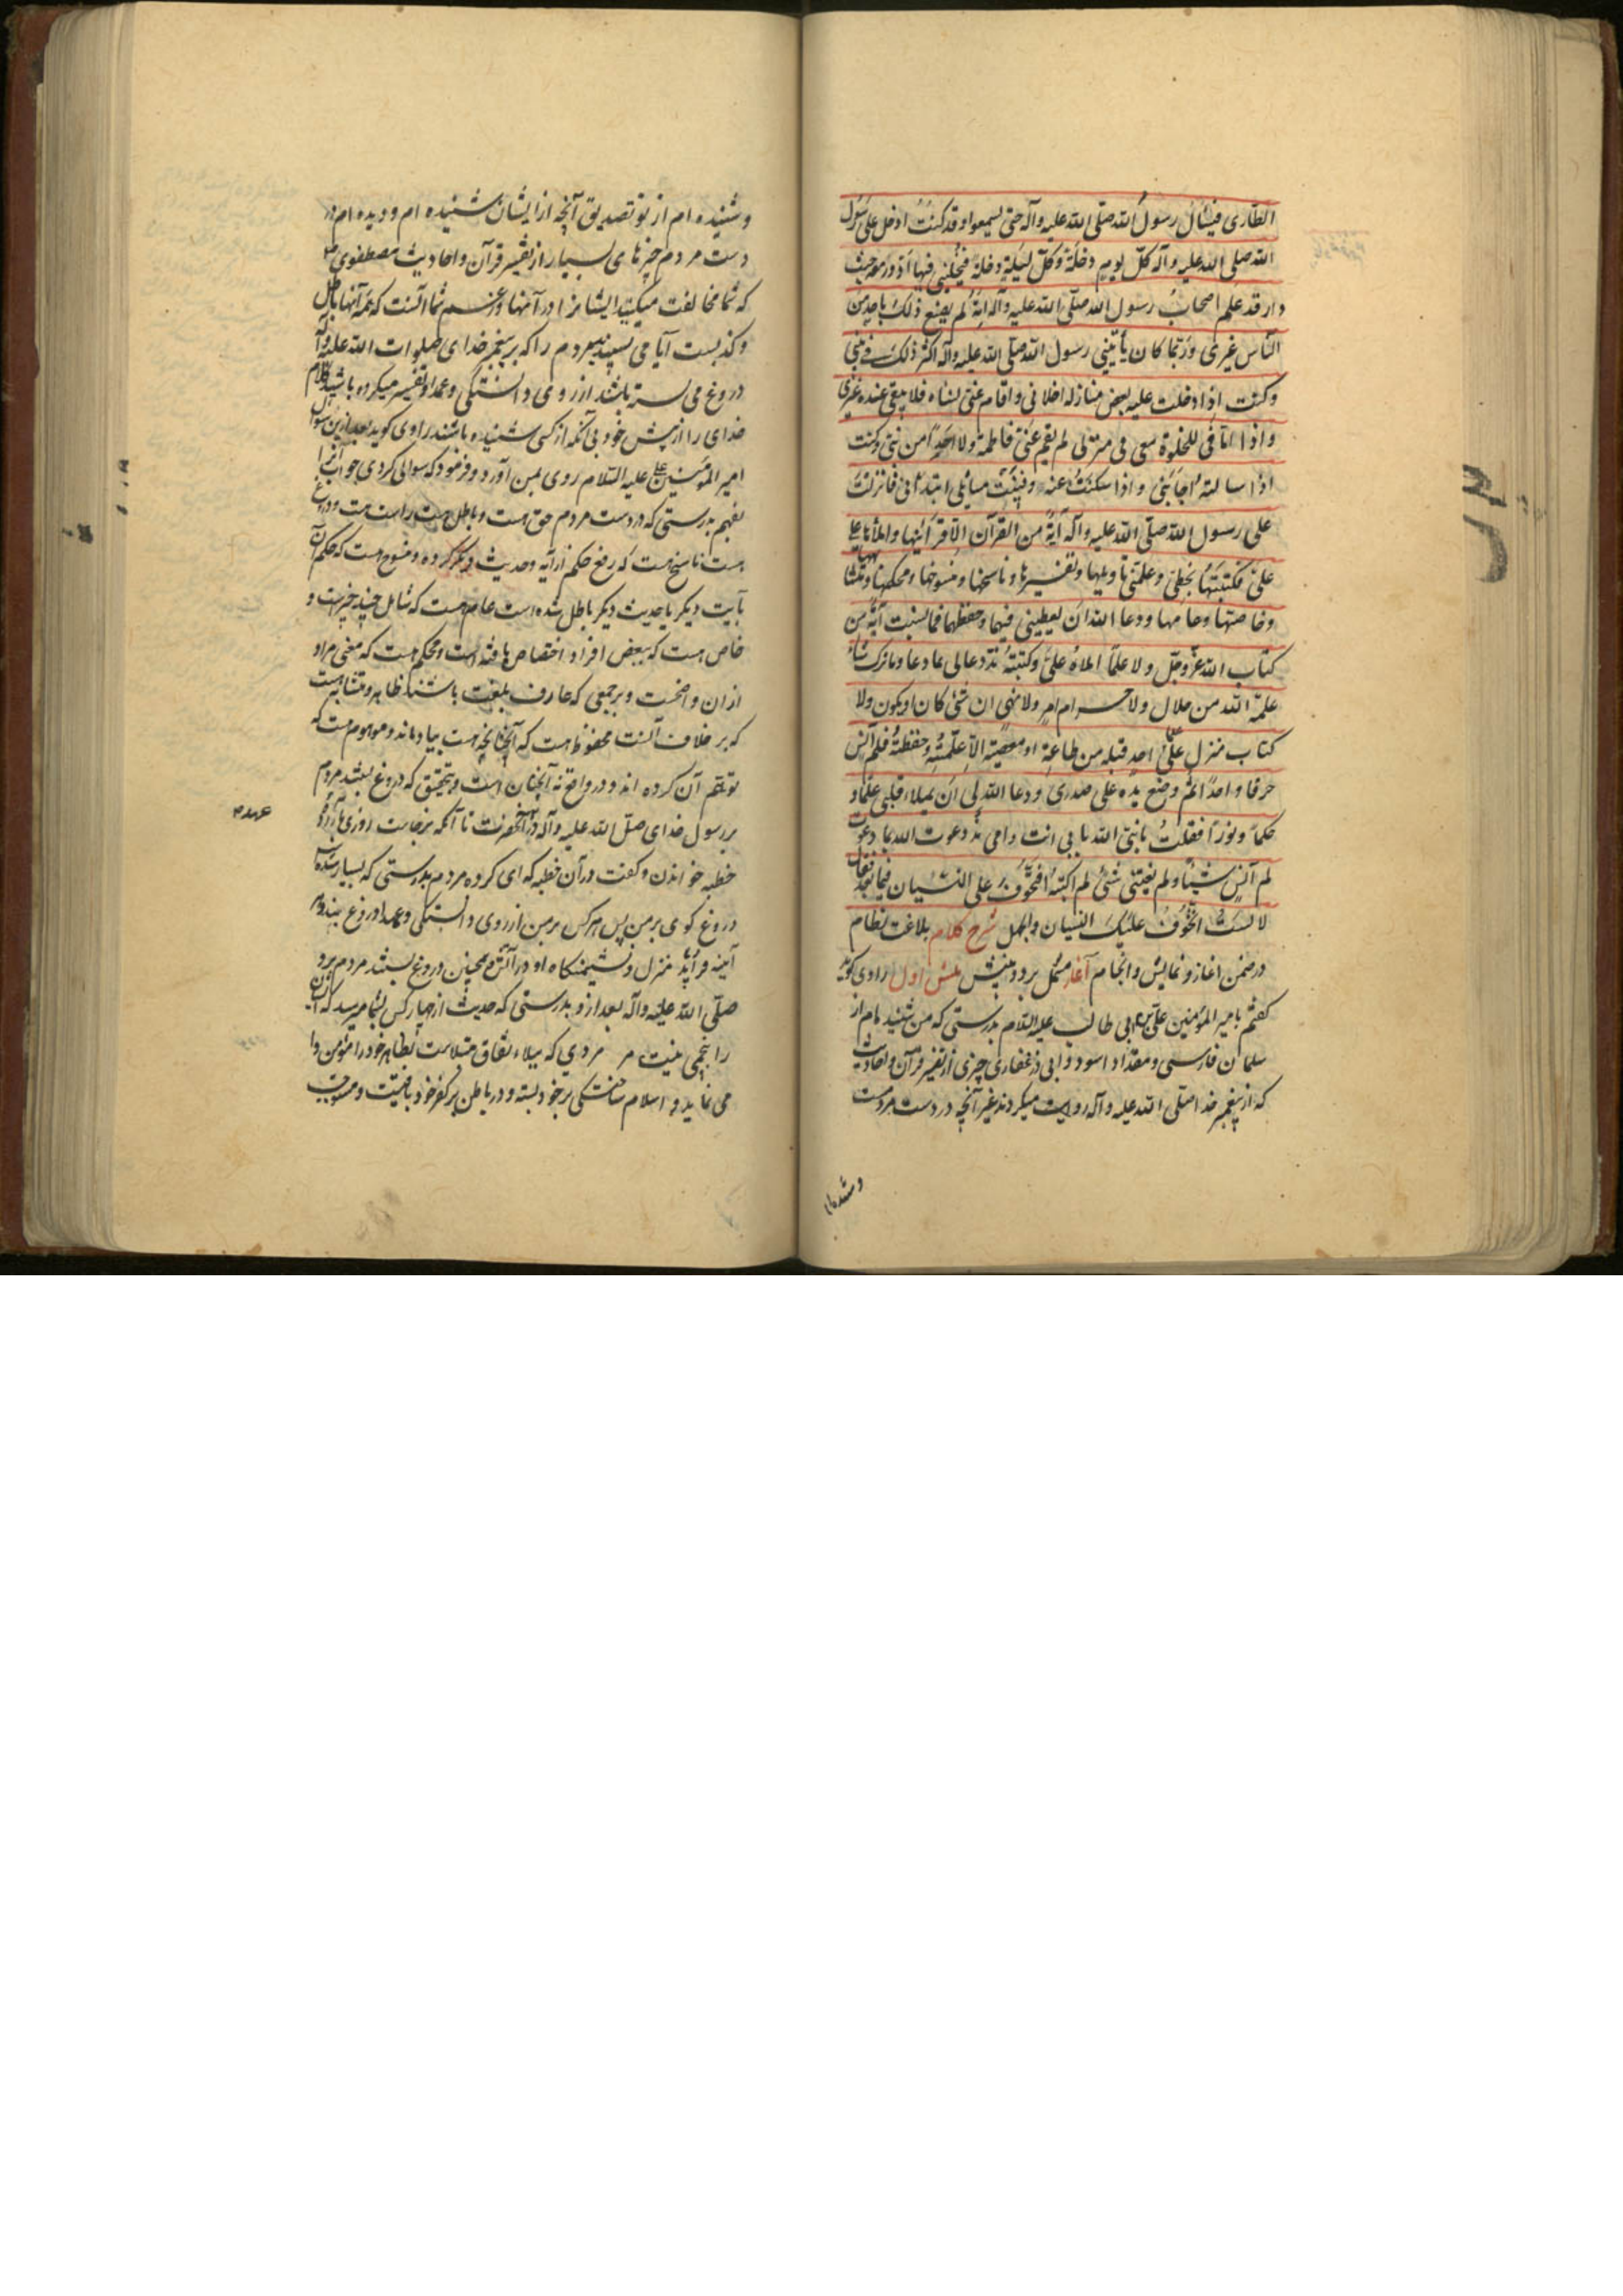 الطاری فیسأل رسول الله صلی الله علیه وآله حتی یسمعوا وقد کنت ادخل علی رسول
الله صلی الله علیه وآله کل یوم دخلة وکل لیلة دخلة فیخلینی فیها ادور معه حیث
دار قد علم اصحاب رسول الله صلی الله علیه وآله انه لم یصنع ذلک باحد من
الناس غیری وربما کان یأتینی رسول الله صلی الله علیه وآله اکثر ذلک فی بیتی
وکنت اذا دخلت علیه بعض منازله اخلانی واقام عنی نساءه فلا یبقی عنده غیری
واذا اتانی للخلوة معی فی منزلی لم یقم عنی فاطمة ولا احدا من بنی وکنت
اذا سالته اجابنی واذا سکت عنه وفنیت مسائلی ابتدأنی فما نزلت
علی رسول الله صلی الله علیه وآله آیة من القرآن الا اقرأنیها واملاها علی
علی فکتبتها بخطی وعلمنی تاویلها وتفسیرها وناسخها ومنسوخها ومحکمها ومتشابهها
وخاصها وعامها ودعا الله ان یعطینی فهمها وحفظها فما نسیت آیة من
کتاب الله عز وجل ولا علما املاه علی وکتبته منذ دعا لی بما دعا وما ترک شیئا
علمه الله من حلال ولا حرام امر ولا نهی ان شیء کان او یکون ولا
کتاب منزل علی احد قبله من طاعة او معصیة الا علمنیه وحفظته فلم انس
حرفا واحدا ثم وضع یده علی صدری ودعا الله لی ان یملاء قلبی علما و
حکما ونورا فقلت یا نبی الله بابی انت وامی منذ دعوت الله بما دعوت
لم انس شیئا ولم یفتنی شیء لم اکتبه افتخوف علی النسیان فیما بعد فقال
لا لست اتخوف علیک النسیان والجهل شرح کلام بلاغت نظام
در ضمن اغاز ونمایش وانجام آغاز مشتمل بر دو بینش بینش اول راوی کوید
کفتم بامیر المؤمنین علی بن ابی طالب علیه السلام بدرستی که من شنیده ام از
سلمان فارسی ومقداد اسود وابی ذر غفاری چیزی از تفسیر قرآن واحادیث
که از پیغمبر خدا صلی الله علیه وآله روایت میکردند غیر آنچه در دست مردمست
وشنیده ام
وشنیده ام از تو تصدیق آنچه از ایشان شنیده ام ودیده ام در
دست مردم چیزهای بسیار از تفسیر قرآن واحادیث مصطفوی
که شما مخالفت میکنید ایشانرا در آنها وزعم شما آنست که همه آنها باطل
وکذبست آیا می بینید مردم را که بر پیغمبر خدای صلوات الله علیه وآله
دروغ می بسته باشند از روی دانستگی وعمدا وتفسیر میکرده باشند کلام
خدای را از پیش خود بی آنکه از کسی شنیده باشند راوی کوید بعد از این سوال
امیر المؤمنین علی علیه السلام روی بمن آورد وفرمود که سوالی کردی جواب آنرا
بفهم بدرستی که در دست مردم حق هست وباطل هست راست هست ودروغ
هست ناسخ هست که رفع حکم از آیه وحدیث دیگر کرده ومنسوخ هست که حکم آن
بآیت دیگر یا حدیث دیگر باطل شده است عام هست که شامل چند چیز است و
خاص هست که ببعض افراد اختصاص یافته است ومحکم هست که معنی مراد
از ان واضحست وبر جمعی که عارف بلغت باشند ظاهر ومتشابه هست
که بر خلاف آنست محفوظ هست که آنچنانچه هست بیاد ماند وموهوم هست که
توهم آن کرده اند ودر واقع نه آنچنان است وبتحقیق که دروغ بستند مردم
بر رسول خدای صلی الله علیه وآله در عهد آنحضرت تا آنکه برخاست روزی
خطبه خواندن وکفت در آن خطبه که ای کروه مردم بدرستی که بسیار شده است
دروغ کوی بر من پس هر کس بر من از روی دانستگی وعمدا دروغ بندد
آینه فراید منزل ونشیمنکاه او در آتش وهمچنین دروغ بستند مردم برو
صلی الله علیه وآله بعد ازو بدرستی که حدیث از چهار کس بشما میرسد که
را پنجمی نیست مردی که مبتلا بنفاق مبتلاست بظاهر خود را مؤمن وا
می نماید واسلام ساختگی بر خود بسته ودر باطن بر کفر خود باقیست